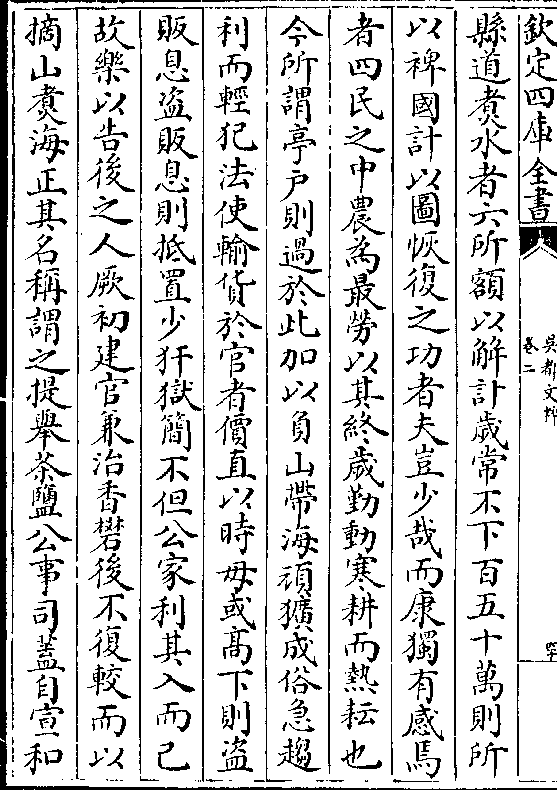 欽定四庫全書
吳都文粹
卷二
縣道煑水者六所額以解計歲常不下百五十萬則所
以裨國計以圖恢復之功者夫豈少哉而康獨有感焉
者四民之中農為最勞以其終歲勤動寒耕而熱耘也
今所謂亭戶則過於此加以負山帶海頑獷成俗急趨
利而輕犯法使輸貨於官者價直以時毋或髙下則盜
販息盜販息則抵罝少犴獄簡不但公家利其入而已
故樂以告後之人厥初建官兼治香礬後不復較而以
摘山煑海正其名稱謂之提舉茶鹽公事司葢自宣和